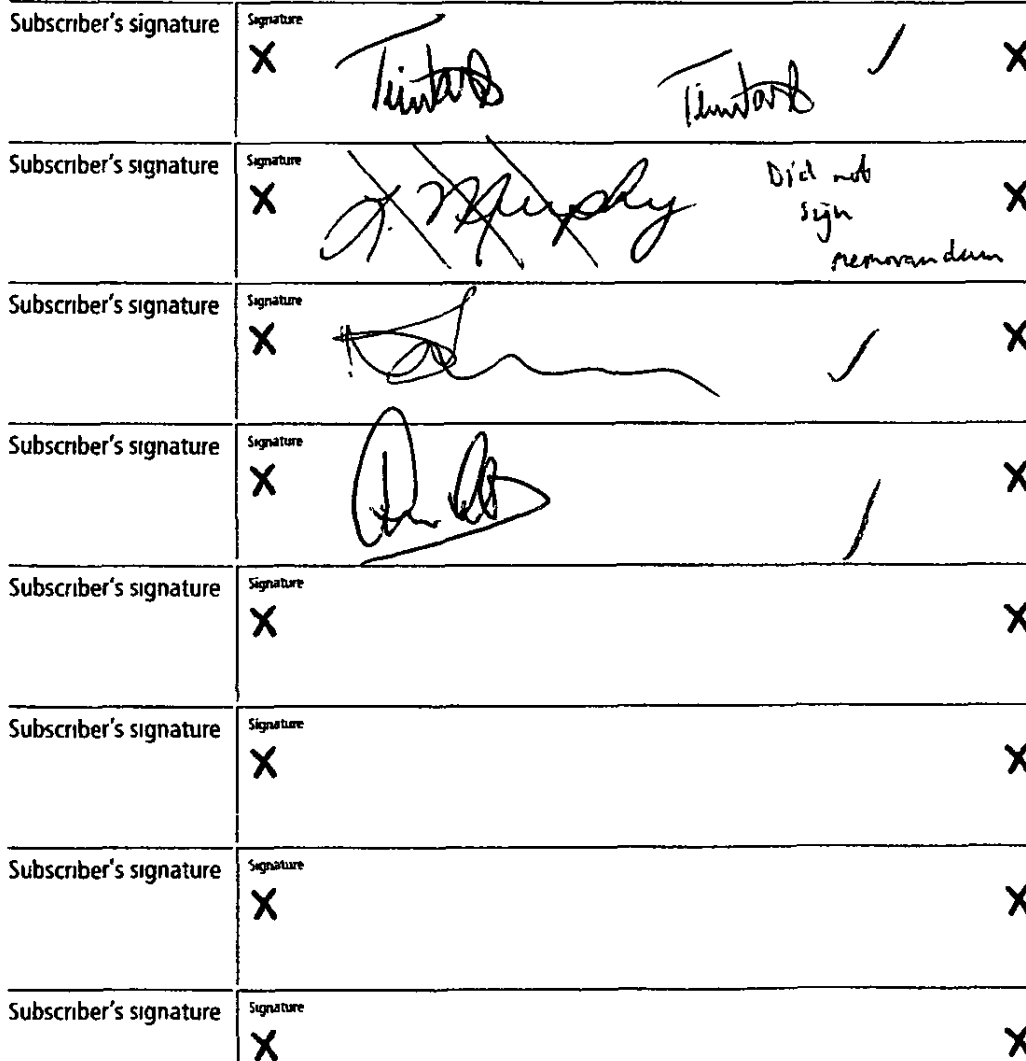 Subscriber's signature Signature
X X
Subscriber's signature Signature
X Murphy Did not X
sign
memorandum
Subscriber's signature Signature
X X
Subscriber's signature Signature
X X
Subscriber's signature Signature
X X
Subscriber's signature Signature
X X
Subscriber's signature Signature
X X
Subscriber's signature Signature
X X